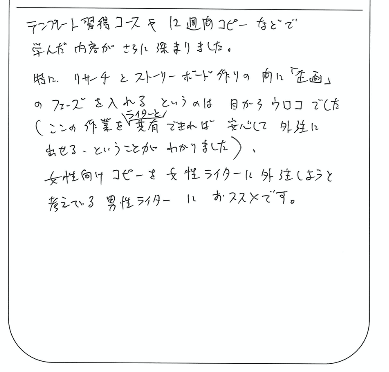 テンプレート習得コースや12週間コピーなどで
学んだ内容がさらに深まりました。
特に、リサーチとストーリーボード作りの間に「企画」
のフェーズを入れるというのは目からウロコでした
(ここの作業をライターと共有できれば安心して外注に
出せる、ということがわかりました)。
女性向けコピーを女性ライターに外注しようと
考えている男性ライターにおススメです。